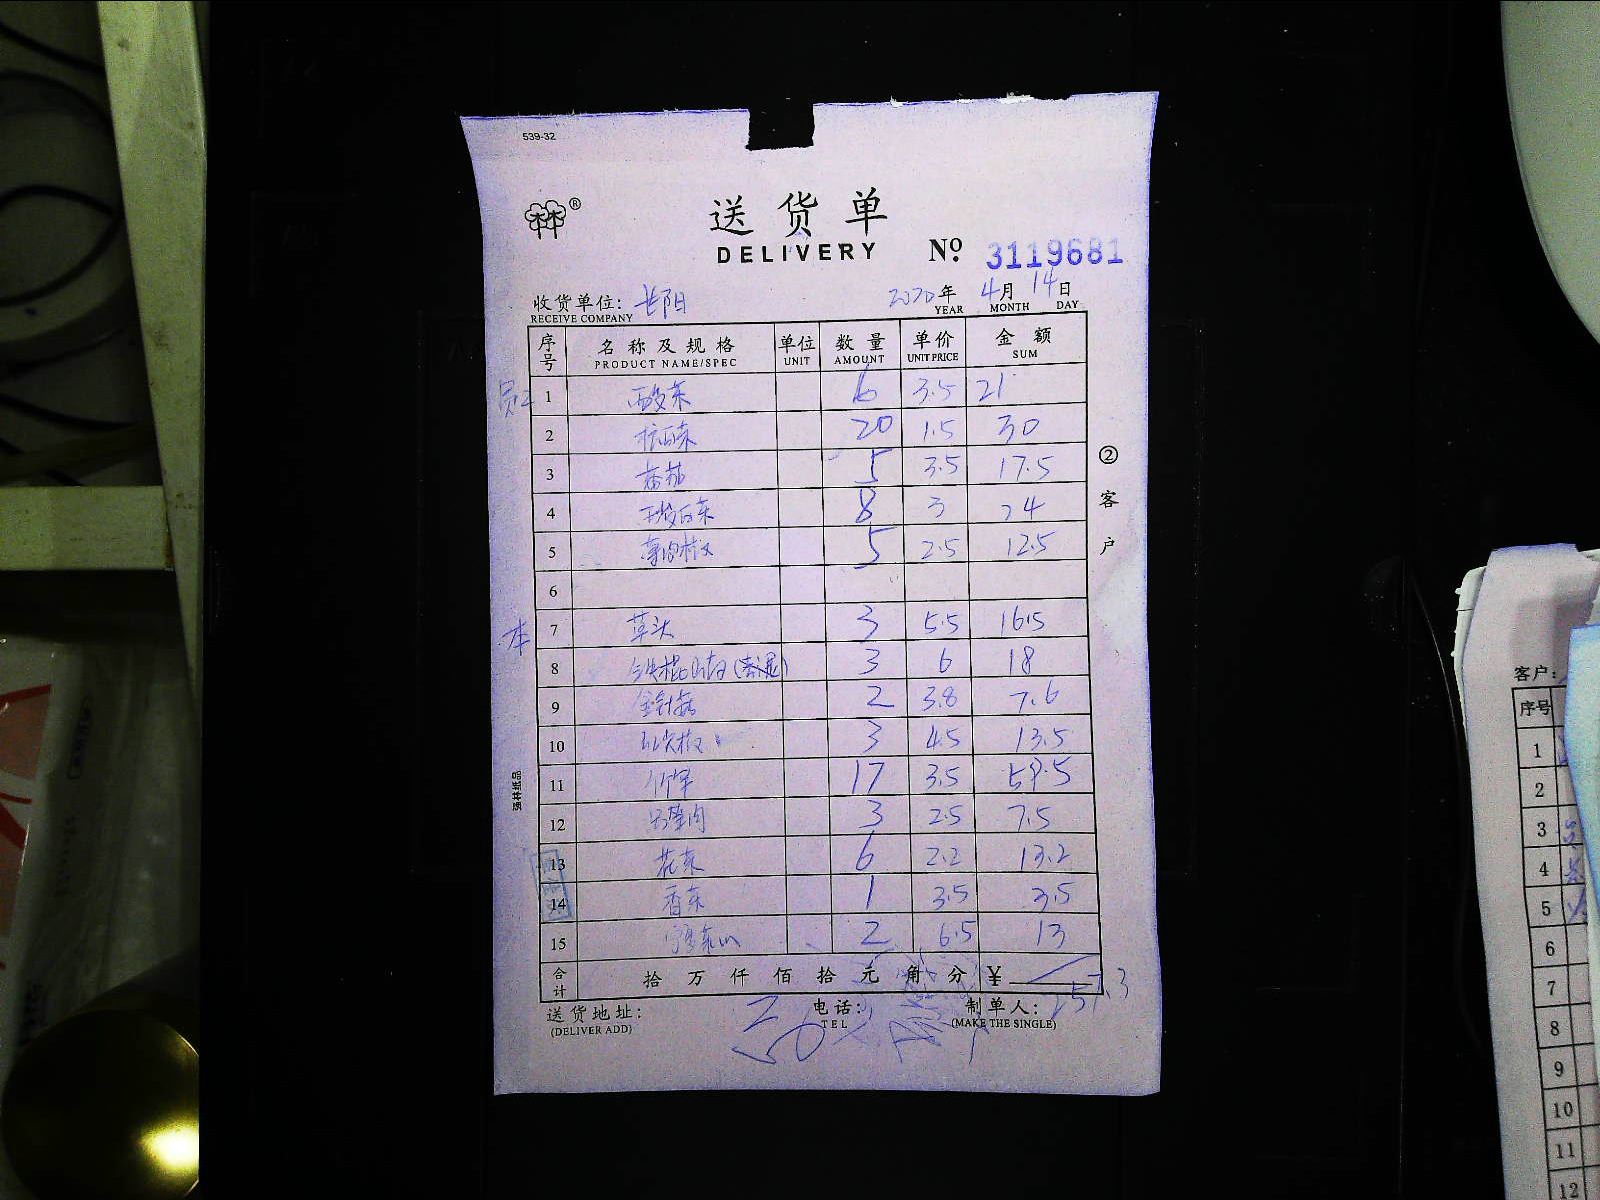 539-32
送货单
DELIVERY No. 3119681
收货单位: 长阳 2020年 4月 14日
RECEIVE COMPANY YEAR MONTH DAY
序号 名称及规格 单位 数量 单价 金额
PRODUCT NAME/SPEC UNIT AMOUNT UNIT PRICE SUM
1 酸菜 6 3.5 21
2 20 1.5 30
3 番茄 5 3.5 17.5
4 8 3 24
5 薄肉椒 5 2.5 12.5
6
本 7 草头 3 5.5 16.5
8 铁棍山药 3 6 18
9 金针菇 2 3.8 7.6
10 红尖椒 3 4.5 13.5
11 17 3.5 59.5
12 3 2.5 7.5
13 花菜 6 2.2 13.2
14 香菜 1 3.5 3.5
15 2 6.5 13
合计 拾 万 仟 佰 拾 元 角 分 ¥ 257.3
送货地址: 电话: 制单人:
(DELIVER ADD) TEL (MAKE THE SINGLE)
②客户
强林纸品
客户:
序号
1
2
3
4
5
6
7
8
9
10
11
12